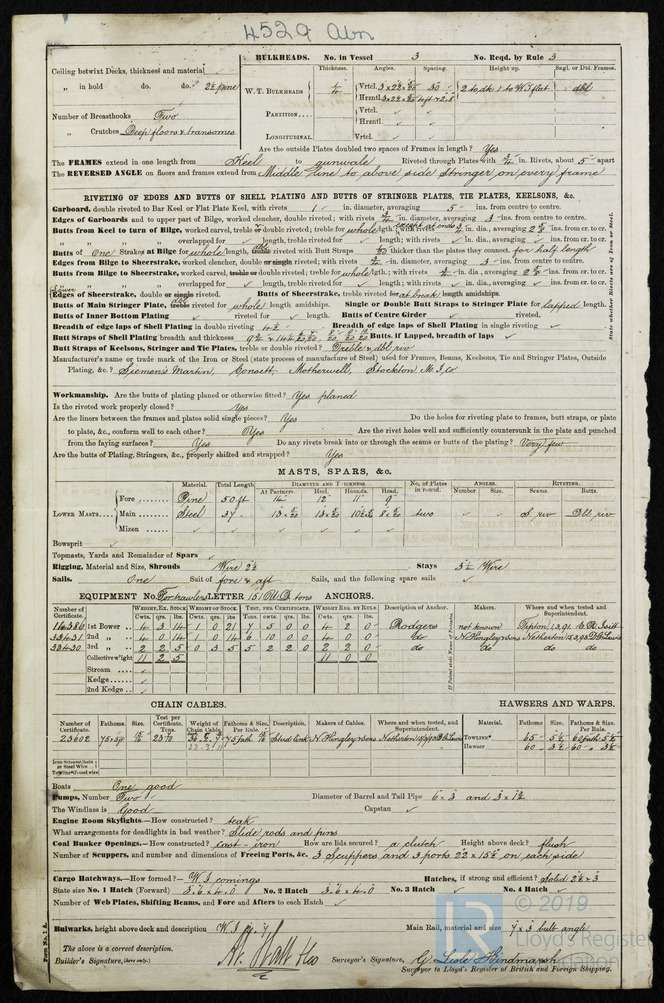 4529 Abn
BULKHEADS. No. in Vessel 3 No. Reqd. by Rule 3
Thickness. Angles. Spacing. Height up. Sngl. or Dbl. Frames.
Ceiling betwixt Decks, thickness and material
„ in hold do. do. 2½ pine
W. T. BULKHEADS Vrtcl. 30 2 to dk 1 to W.T flat dbl
Hrzntl.
Number of Breasthooks Two
PARTITION Vrtcl.
„ Crutches Deep floors & transomes
Hrzntl.
LONGITUDINAL. Vrtcl.
Are the outside Plates doubled two spaces of Frames in length? Yes
The FRAMES extend in one length from Keel to gunwale Riveted through Plates with ¾ in. Rivets, about 5 apart
The REVERSED ANGLE on floors and frames extend from Middle line to above side stringer on every frame
RIVETING OF EDGES AND BUTTS OF SHELL PLATING AND BUTTS OF STRINGER PLATES, TIE PLATES, KEELSONS, &c.
Garboard, double riveted to Bar Keel or Flat Plate Keel, with rivets 1 in. diameter, averaging 5 ins. from centre to centre.
Edges of Garboards and to upper part of Bilge, worked clencher, double riveted; with rivets ¾ in. diameter, averaging 3 ins. from centre to centre.
Butts from Keel to turn of Bilge, worked carvel, treble riveted; treble for whole lgth. in. dia., averaging ins. cr. to cr.
„ „ „ overlapped for length, treble riveted for length; with rivets in. dia., averaging ins. cr. to cr.
Butts of One Strakes at Bilge for whole length, riveted with Butt Straps thicker than the plates they connect. for half length
Edges from Bilge to Sheerstrake, worked clencher, double or single riveted; with rivets ¾ in. diameter, averaging 3 ins. from cr. to cr.
Butts from Bilge to Sheerstrake, worked carvel, treble or double riveted; treble for whole lgth.; with rivets ¾ in. dia., averaging ins. cr. to cr.
„ „ „ overlapped for length, treble riveted for length; with rivets in. dia., averaging ins. cr. to cr.
Edges of Sheerstrake, double or single riveted. Butts of Sheerstrake, treble riveted for at break length amidships.
Butts of Main Stringer Plate, treble riveted for whole length amidships. Single or Double Butt Straps to Stringer Plate for lapped length.
Butts of Inner Bottom Plating riveted for length. Butts of Centre Girder riveted.
Breadth of edge laps of Shell Plating in double riveting 4½ Breadth of edge laps of Shell Plating in single riveting
Butt Straps of Shell Plating breadth and thickness Butts, if Lapped, breadth of laps
Butt Straps of Keelsons, Stringer and Tie Plates, treble or double riveted? Treble & dbl riv
State whether Rivets are of Iron or Steel.
Manufacturer's name or trade mark of the Iron or Steel (state process of manufacture of Steel) used for Frames, Beams, Keelsons, Tie and Stringer Plates, Outside
Plating, &c.? Siemen's Martin, Consett, Motherwell, Stockton M. I. Co
Workmanship. Are the butts of plating planed or otherwise fitted? Yes planed
Is the riveted work properly closed? Yes
Are the liners between the frames and plates solid single pieces? Yes Do the holes for riveting plate to frames, butt straps, or plate
to plate, &c., conform well to each other? Yes Are the rivet holes well and sufficiently countersunk in the plate and punched
from the faying surfaces? Yes Do any rivets break into or through the seams or butts of the plating? Very few
Are the butts of Plating, Stringers, &c., properly shifted and strapped? Yes
MASTS, SPARS, &c.
Material. Total Length DIAMETER AND THICKNESS. No. of Plates in round. ANGLES. RIVETING.
At Partners. Heel. Hounds. Head. Number Size. Seams. Butts.
Fore Pine 50 ft 14" 12" 11" 9"
LOWER MASTS Main Steel 37 two S. riv Dbl riv
Mizen
Bowsprit
Topmasts, Yards and Remainder of Spars
Rigging, Material and Size, Shrouds Wire 2½ Stays 3½ Wire
Sails. One Suit of fore & aft Sails, and the following spare sails
EQUIPMENT No. For trawlers LETTER 151 M.D. tons ANCHORS.
Number of Certificate. WEIGHT, EX. STOCK WEIGHT OF STOCK. TEST, PER CERTIFICATE. WEIGHT REQ. BY RULE Description of Anchor. Makers. Where and when tested and Superintendent.
Cwts. qrs. lbs. Cwts. qrs. lbs. Tons. cwts. qrs. lbs. Cwts. qrs. lbs.
14386 1st Bower 4 3 14 1 0 21 7 5 0 0 4 2 0 Rodgers not known Tipton
33431 2nd „ 4 0 14 1 0 14 6 10 0 0 4 2 0 do N. Hingley & sons Netherton
33430 3rd „ 2 2 5 0 3 5 5 2 2 0 2 2 0 do do do do
Collective w'ght 11 2 5 11 0 0
Stream
Kedge
2nd Kedge
CHAIN CABLES. HAWSERS AND WARPS.
Number of Certificate. Fathoms. Size. Test per Certificate. Tons. Weight of Chain Cable. Fathoms & Size, Per Rule. Description. Makers of Cables. Where and when tested, and Superintendent. Material. Fathoms Size. Fathoms & Size Per Rule.
23602 Stud link N. Hingley & sons Netherton TOWLINE 65 5½ 60 fath 5½
HAWSER 60 3½ 60 3½
Boats One good
Pumps, Number Two Diameter of Barrel and Tail Pipe 6 x 3 and 3 x 1½
The Windlass is Good Capstan
Engine Room Skylights.—How constructed? teak
What arrangements for deadlights in bad weather? Slide rods and pins
Coal Bunker Openings.—How constructed? cast-iron How are lids secured? a clutch Height above deck? flush
Number of Scuppers, and number and dimensions of Freeing Ports, &c. 3 Scuppers and 3 ports 22 x 15½ on each side
Cargo Hatchways.—How formed? W. I comings Hatches, if strong and efficient? Solid 2½ + 3
State size No. 1 Hatch (Forward) 3.6 x 4.0 No. 2 Hatch 3.6 x 4.0 No. 3 Hatch No. 4 Hatch
Number of Web Plates, Shifting Beams, and Fore and Afters to each Hatch
Bulwarks, height above deck and description W. I Main Rail, material and size 7 x 3 bulb angle
The above is a correct description.
Builder's Signature, (here only.) Surveyor's Signature, G. Lisle Hindmarsh
Surveyor to Lloyd's Register of British and Foreign Shipping.
Form No. 1 A.
© 2019
LR
Lloyd's Register
Foundation